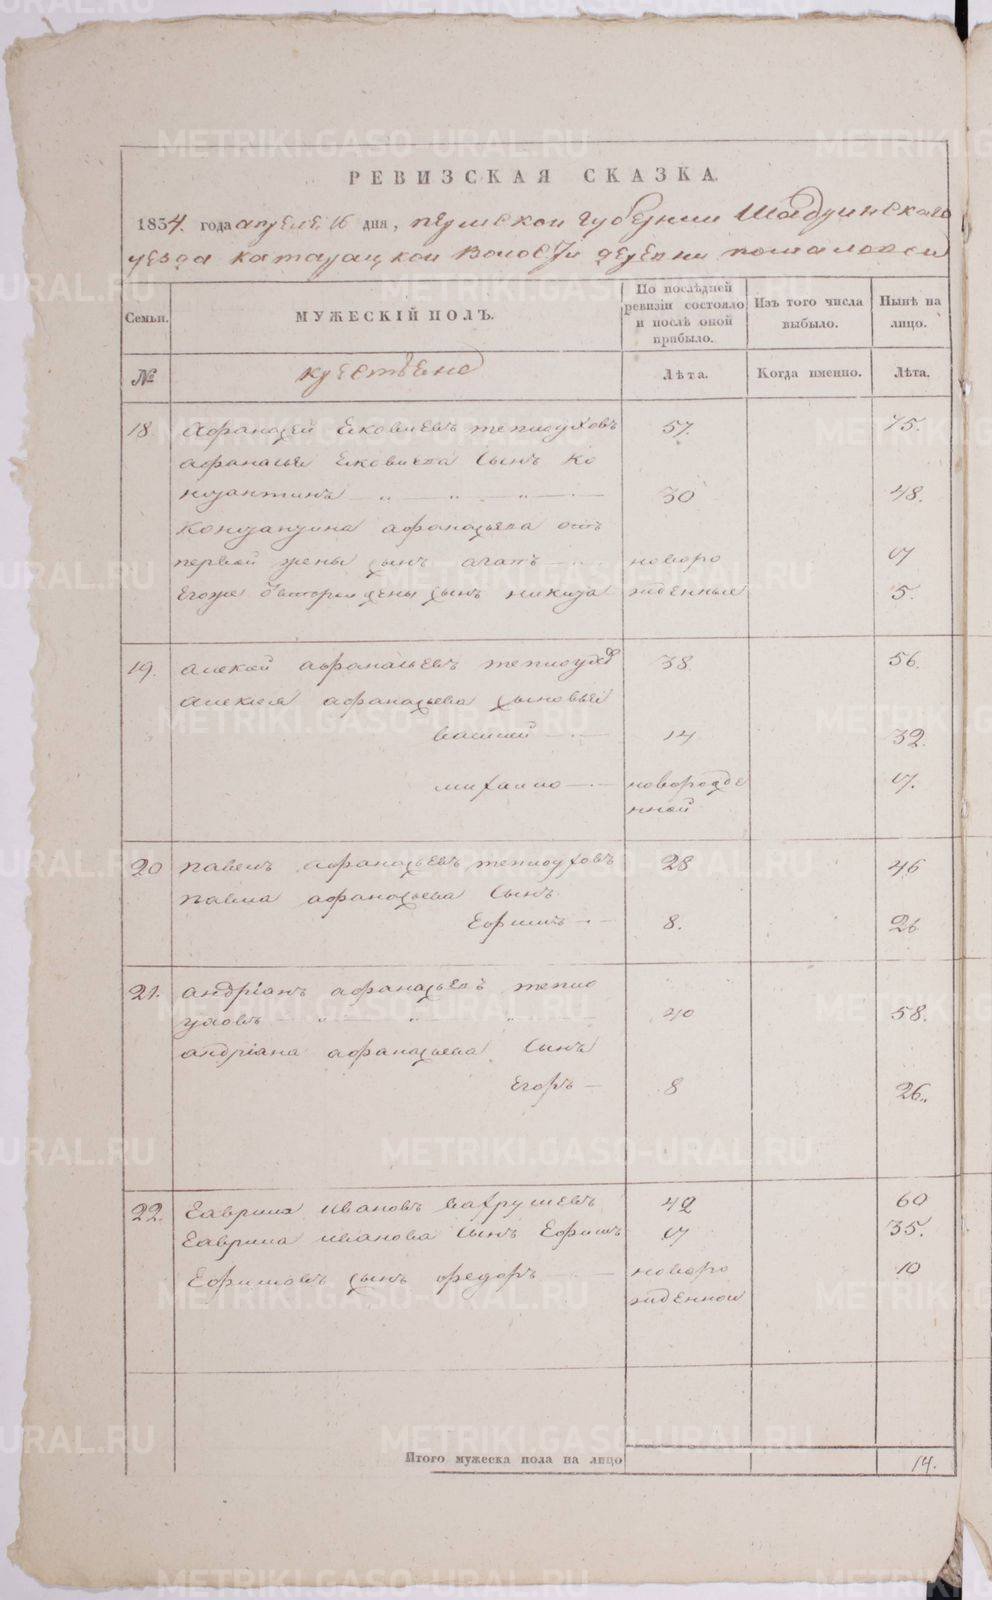 РЕВИЗСКАЯ СКАЗКА.
1854. года апреле 16 дня, пермской губернии Шадринскаго
уезда катайской волости деревни
Семьи.
МУЖЕСКІЙ ПОЛЪ.
По послѣдней ревизіи состояло и послѣ оной прибыло.
Изъ того числа выбыло.
Нынѣ на лицо.
№
Лѣта.
Когда именно.
Лѣта.
18. Афанасей теплоуховъ 57. 75.
афанасья сынъ ко
нстантинъ 30 48.
константина афанасьева отъ
первой жены сынъ новоро 17
Егоже второй жены сынъ никита жденные 5.
19. алексей афанасьевъ теплоухов 38. 56.
алексея афанасьева сыновья
василий 14 32.
михаило новорожде 17.
нной
20 павелъ афанасьевъ теплоуховъ 28 46
павла афанасьева сынъ
Ефимъ 8. 26
21. андріанъ афанасьевъ тепло
уховъ 40 58.
андріана афанасьева сынъ
Егоръ 8 26.
22. Гаврила ивановъ вахрушевъ 42 60
Гаврила иванова сынъ Ефимъ 17 35.
Ефимовъ сынъ федоръ новоро 10
жденной
Итого мужеска пола на лицо 14.
METRIKI.GASO-URAL.RU